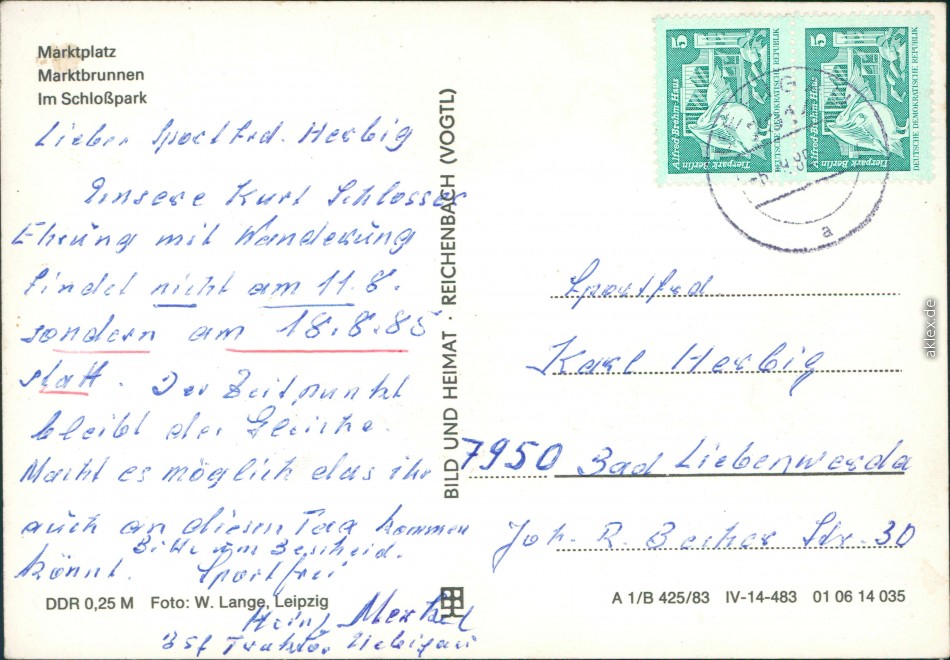 Marktplatz
Marktbrunnen
Im Schloßpark
Lieber Sportfrd. Herbig
Unsere Kurt Schlosser
Ehrung mit Wanderung
findet nicht am 11.8.
sondern am 18.8.85
statt. Der Zeitpunkt
bleibt der Gleiche.
Macht es möglich das ihr
auch an diesem Tag kommen
könnt.
Bitte um Bescheid.
Sport frei
Heinz Merkel
BSG Traktor Uebigau
DDR 0,25 M Foto: W. Lange, Leipzig
BILD UND HEIMAT · REICHENBACH (VOGTL)
5
Alfred-Brehm-Haus
Tierpark Berlin
DEUTSCHE DEMOKRATISCHE REPUBLIK
5
Alfred-Brehm-Haus
Tierpark Berlin
DEUTSCHE DEMOKRATISCHE REPUBLIK
a
Sportfrd.
Karl Herbig
7950 Bad Liebenwerda
Joh. R. Becher Str. 30
A 1/B 425/83 IV-14-483 01 06 14 035
aklex.de